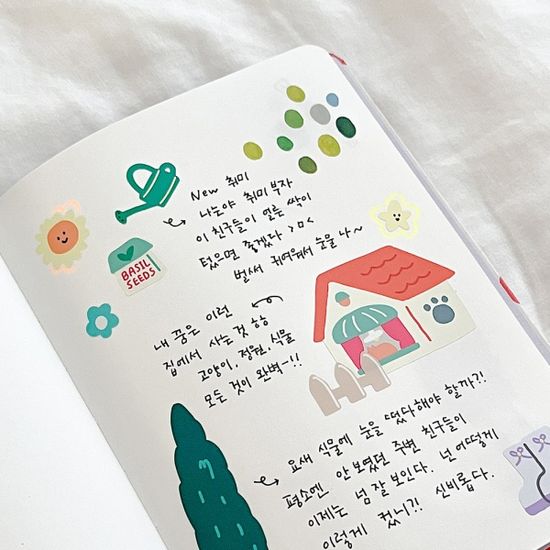 New 취미
나는야 취미 부자
이 친구들이 얼른 싹이
텄으면 좋겠다 >ㅁ<
벌써 귀여워서 눈물 나~
BASIL
SEEDS
내 꿈은 이런
집에서 사는 것 하하
고양이, 정원, 식물
모든 것이 완벽-!!
요새 식물에 눈을 떴다 해야 할까?!
평소엔 안 보였던 주변 친구들이
이제는 넘 잘 보인다. 넌 어떻게
이렇게 컸니?! 신비롭다.